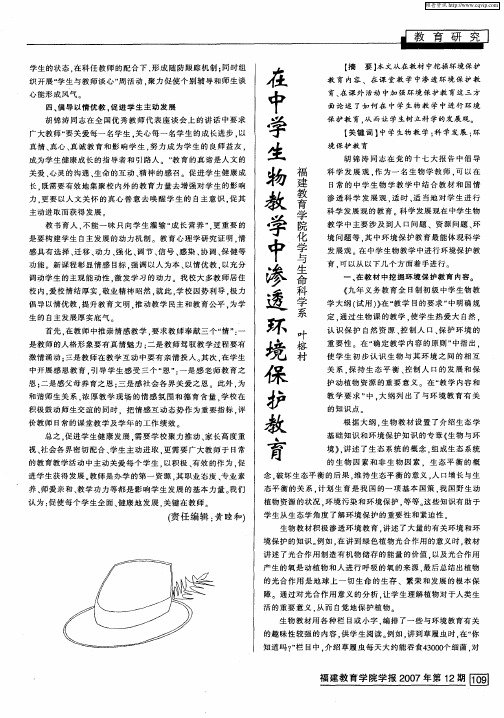 维普资讯 http://www.cqvip.com
教 育 研 究
学生的状态,在科任教师的配合下,形成随防跟踪机制;同时组
织开展“学生与教师谈心”周活动,聚力促使个别辅导和师生谈
心能形成风气。
四、倡导以情优教,促进学生主动发展
胡锦涛同志在全国优秀教师代表座谈会上的讲话中要求
广大教师“要关爱每一名学生,关心每一名学生的成长进步,以
真情、真心、真诚教育和影响学生,努力成为学生的良师益友,
成为学生健康成长的指导者和引路人。”教育的真谛是人文的
关爱、心灵的沟通、生命的互动、精神的感召。促进学生健康成
长,既需要有效地集聚校内外的教育力量去增强对学生的影响
力,更要以人文关怀的真心善意去唤醒学生的自主意识,促其
主动进取而获得发展。
教书育人,不能一味只向学生灌输“成长营养”,更重要的
是要构建学生自主发展的动力机制。教育心理学研究证明,情
感具有选择、迁移、动力、强化、调节、信号、感染、协调、保健等
功能。新课程彰显情感目标,强调以人为本、以情优教,以充分
调动学生的主观能动性,激发学习的动力。我校大多教师居住
校内,爱校情结厚实,敬业精神昭然,就此,学校因势利导,极力
倡导以情优教,提升教育文明,推动教学民主和教育公平,为学
生的自主发展厚实底气。
首先,在教师中推崇情感教学,要求教师奉献三个“情”:一
是教师的人格形象要有真情魅力;二是教师驾驭教学过程要有
激情涌动;三是教师在教学互动中要有亲情投人。其次,在学生
中开展感恩教育,引导学生感受三个“恩”:一是感念师教育之
恩;二是感父母养育之恩;三是感社会各界关爱之恩。此外,为
和谐师生关系,浓厚教学现场的情感氛围和德育含量,学校在
积极鼓动师生交流的同时,把情感互动态势作为重要指标,评
价教师日常的课堂教学及学年的工作绩效。
总之,促进学生健康发展,需要学校聚力推动、家长高度重
视、社会各界密切配合、学生主动进取、更需要广大教师于日常
的教育教学活动中主动关爱每个学生,以积极、有效的作为,促
进学生获得发展。教师是办学的第一资源,其职业态度、专业素
养、师爱亲和、教学功力等都是影响学生发展的基本力量。我们
认为:促使每个学生全面、健康地发展,关键在教师。
(责任编辑:黄睦和)
在中学生物教学中渗透环境保护教育
福建教育学院化学与生命科学系 叶榕村
【摘 要】本文从在教材中挖掘环境保护
教育内容、在课堂教学中渗透环境保护教
育、在课外活动中加强环境保护教育这三方
面论述了如何在中学生物教学中进行环境
保护教育,从而让学生树立科学的发展观。
【关键词】中学生物教学;科学发展;环
境保护教育
胡锦涛同志在党的十七大报告中倡导
科学发展观,作为一名生物学教师,可以在
日常的中学生物学教学中结合教材和国情
渗透科学发展观,适时、适当地对学生进行
科学发展观的教育。科学发展观在中学生物
教学中主要涉及到人口问题、资源问题、环
境问题等,其中环境保护教育最能体现科学
发展观。在中学生物教学中进行环境保护教
育,可以从以下几个方面着手进行。
一、在教材中挖掘环境保护教育内容。
《九年义务教育全日制初级中学生物教
学大纲(试用)》在“教学目的要求”中明确规
定,通过生物课的教学,使学生热爱大自然,
认识保护自然资源、控制人口、保护环境的
重要性。在“确定教学内容的原则”中指出,
使学生初步认识生物与其环境之间的相互
关系,保持生态平衡、控制人口的发展和保
护动植物资源的重要意义。在“教学内容和
教学要求”中,大纲列出了与环境教育有关
的知识点。
根据大纲,生物教材设置了介绍生态学
基础知识和环境保护知识的专章《生物与环
境》,讲述了生态系统的概念、组成生态系统
的生物因素和非生物因素、生态平衡的概
念,破坏生态平衡的后果,维持生态平衡的意义,人口增长与生
态平衡的关系,计划生育是我国的一项基本国策,我国野生动
植物资源的状况,环境污染和环境保护,等等。这些知识有助于
学生从生态学角度了解环境保护的重要性和紧迫性。
生物教材积极渗透环境教育,讲述了大量的有关环境和环
境保护的知识。例如,在讲到绿色植物光合作用的意义时,教材
讲述了光合作用制造有机物储存的能量的价值,以及光合作用
产生的氧是动植物和人进行呼吸的氧的来源,最后总结出植物
的光合作用是地球上一切生命的生存、繁荣和发展的根本保
障。通过对光合作用意义的分析,让学生理解植物对于人类生
活的重要意义,从而自觉地保护植物。
生物教材用各种栏目或小字,编排了一些与环境教育有关
的趣味性较强的内容,供学生阅读。例如,讲到草履虫时,在“你
知道吗?”栏目中,介绍草履虫每天大约能吞食43000个细菌,对
福建教育学院学报 2007 年第 12 期 109